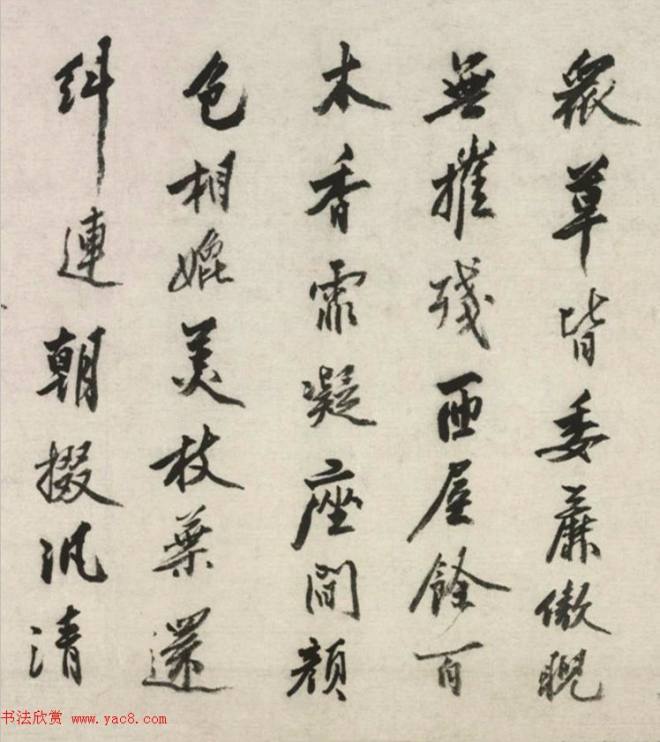 衆草皆委靡傲睨
無摧殘匝屋餘百
本香霏凝座間顏
色相媲美枝葉還
糾連朝掇汎清
书法欣赏 www.yac8.com